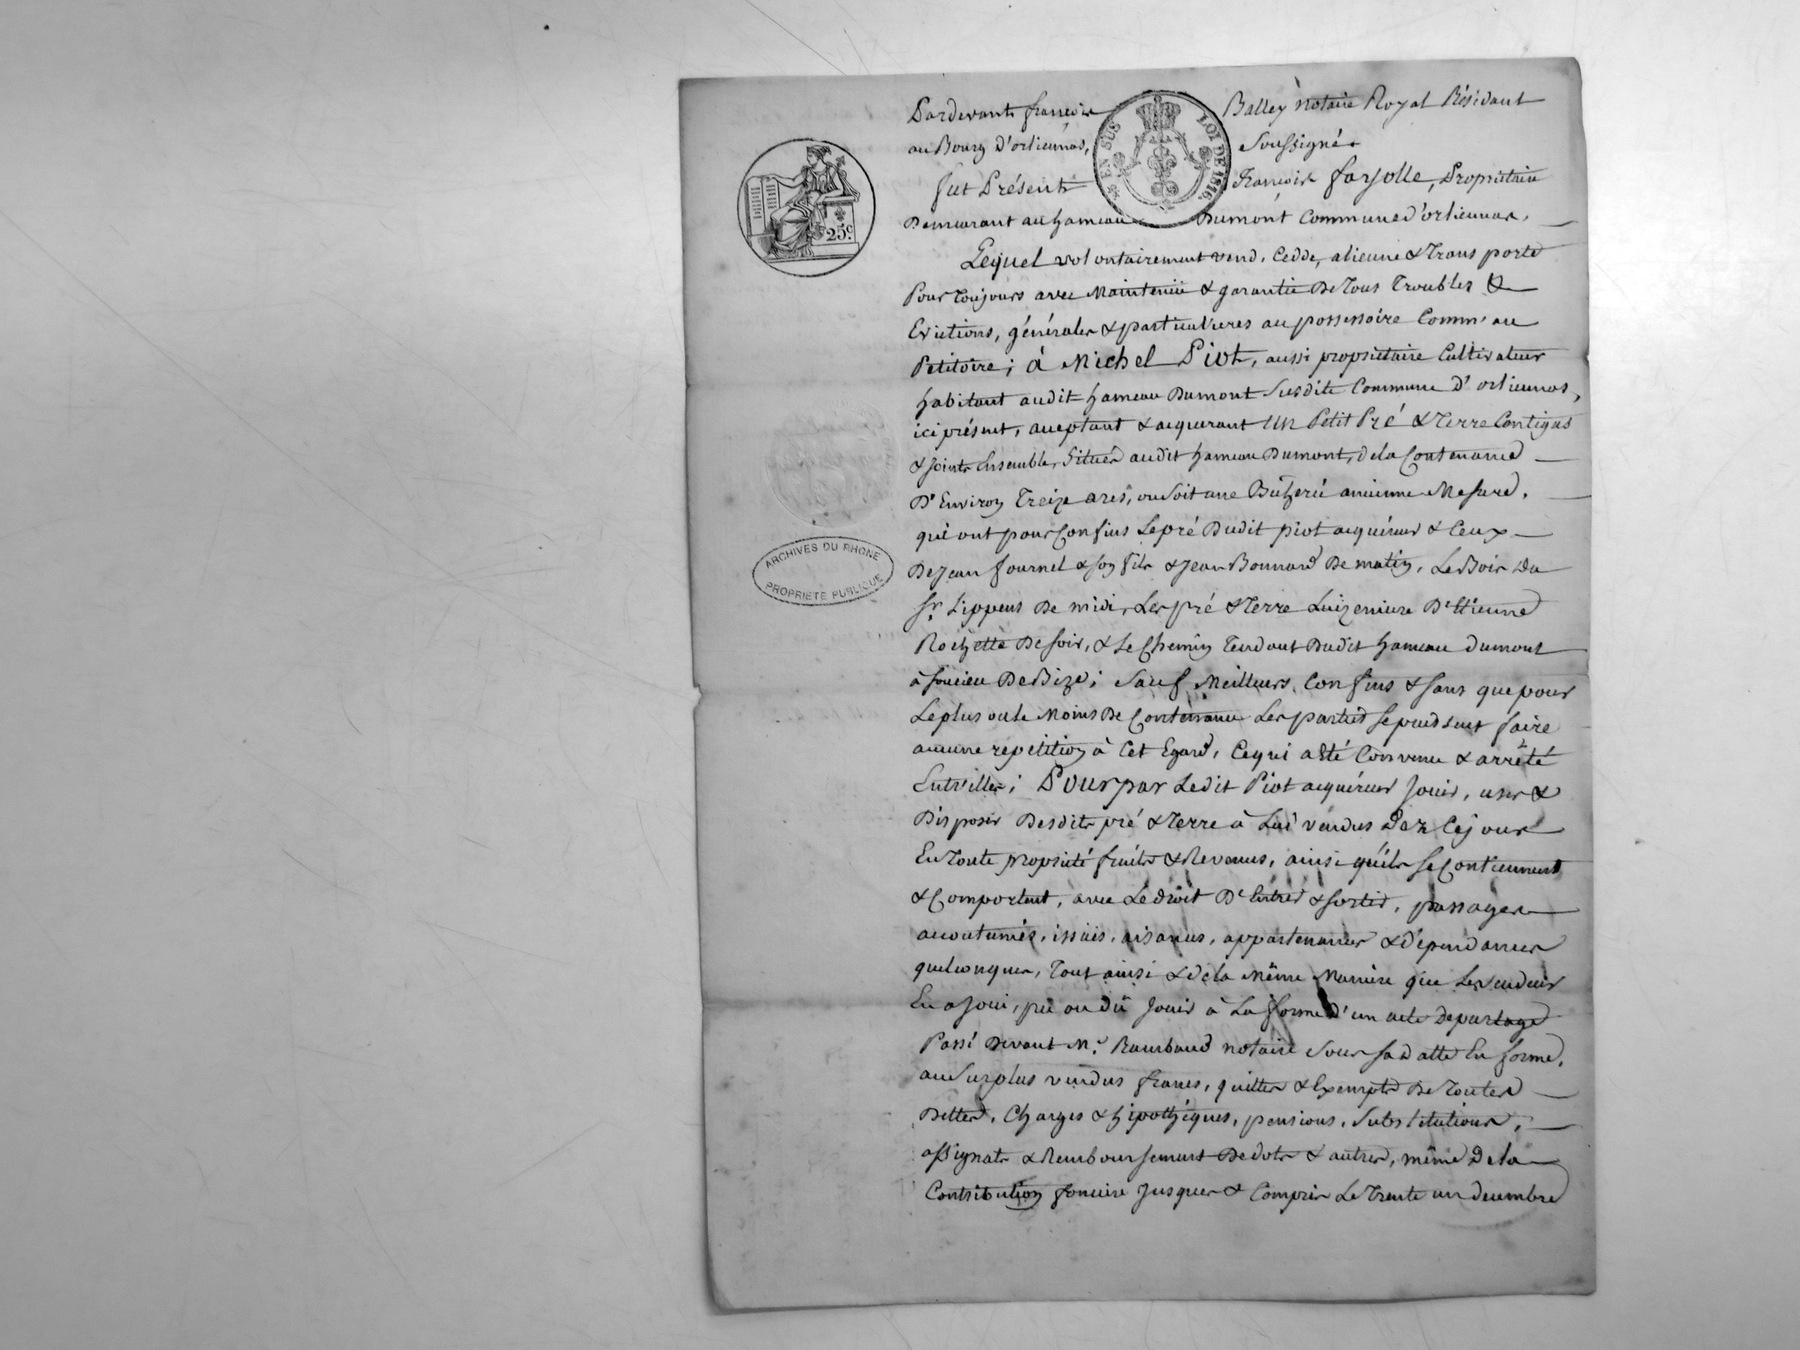 Pardevant françois Balley notaire Royal Résidant
au Bourg d'orliénas, Soussigné
EN SUS
LOI DE 1816.
fut Présent françois farjolle, Propriétaire
Demeurant au hameau Dumont Commune d'orliennas,
25c.
Lequel volontairement vend, Cedde, alienne & Transporte
Pour Toujours avec Maintenüe & garantie De Tous Troubles &
Evictions, générales & particulieres au possessoire Comm' au
Petitoire; à Michel Piot, aussi propriétaire Cultivateur
habitant audit hameau Dumont Susdite Commune d'orliennas,
ici présent, acceptant & acquerant Un Petit Pré & Terre Contigus
& Joints Ensemble, Situés audit hameau Dumont, dela Contenance
D'Environ Treize ares, ou Soit une Bicherée ancienne Mesure,
qui ont pour Confins Le pré Dudit piot acquéreur & Ceux
De Jean fournel & son fils & Jean Bonnard De matin, Le Bois du
Sr. Lippens De midi, Les pré & Terre Luizerniere D'Etienne
Rochette De soir, & Le Chemin Tendant Dudit hameau dumont
ARCHIVES DU RHONE
PROPRIETE PUBLIQUE
à soucieu De Bize; Sauf Meilleurs Confins & sans que pour
Le plus ou le Moins De Contenance Les parties se puissent faire
aucune répétition à Cet Egard, Ce qui a été Convenu & arrêté
Entr'elles; Pour par Ledit Piot acquéreur Jouir, user &
Disposer Desdits pré & Terre à Lui vendus Dez Ce jour
En Toute propriété fruits & Revenus, ainsi qu'ils se Contiennent
& Comportent, avec Le droit D'Entrer & sortir, passages
accoutumés, issues, aisances, appartenances & dépendances
quelconques, Tout ainsi & de la Même Manière que Le vendeur
En a Joui, pu ou dû Jouir à La forme d'un acte departage
Passé Devant Me. Raimbaud notaire Sous sa datte En forme,
au Surplus vendus francs, quittes & Exempts De Toutes
Dettes, Charges & hipothèques, pensions, Substitutions,
assignats & Remboursement De dots & autres, même De la
Contribution fonciere Jusques & Compris Le Trente un decembre